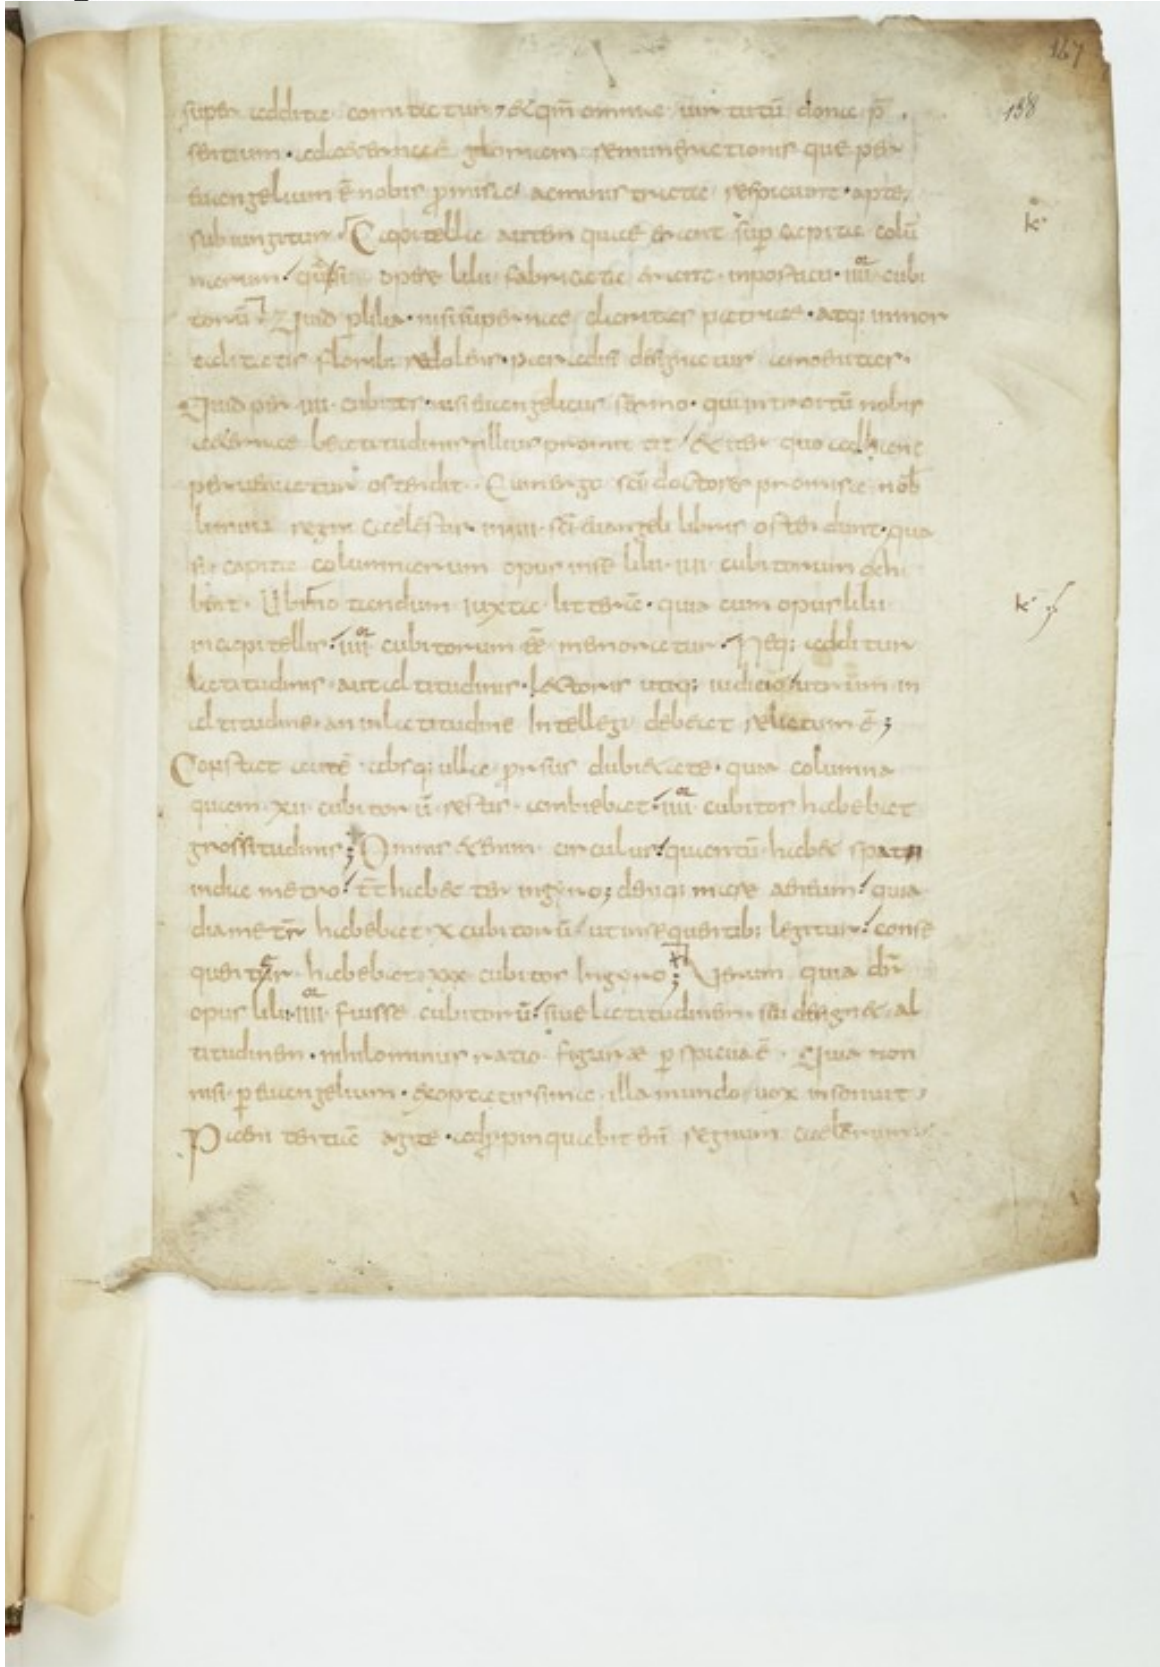 167
158
super addita comitatur, & qm̄ omnia uirtutū dona p̄
sentium · ad aeternae gloriam remunerationis que per
euangelium ē nobis p̄missa administrata respiciunt · apte
subiungitur Capitella autem quae erant sup̄ capita colū
narum quasi opere lilii fabricata erant · in porticu · iiii cubi
torū Quid p lilia · nisi supernae claritas patriae · atq; inmor
talitatis florib; redolens · paradisi designatur amoenitas ·
Quid per iiii · cubitos · nisi euangelicus sermo · qui introitū nobis
aeternae beatitudinis illius promittit & iter quo ad hanc
perueniatur ostendit · Cum ergo sc̄i doctores promissa nob̄
limina regni caelestis in iiii · sc̄i euangelii libris ostendunt · qua
si capita columnarum opus in se lilii · iiii · cubitorum exhi
bent · Ubi notandum iuxta litterā · quia cum opus lilii
in capitellis iiii cubitorum ēē memoratur Neq; additur
latitudinis · aut altitudinis · lectoris utiq; iudicio utrum in
altitudine · an in latitudine Intellegi debeat relictum ē ;
Constat autē · absq; ulla prorsus dubietate · quia columna
quam · xii · cubitorū restis · ambiebat iiii cubitos habebat
grossitudinis ; Omnis etenim circulus quantū habet spatii
in diametro tt̄ habet ter in gyro ; deniq; mare aeneum quia
diametr̄ habebat · x cubitorū ut in sequentib; legitur conse
quenter habebat xxx cubitos In gyro ; Uerum quia dr̄
opus lilii iiii fuisse cubitorū siue latitudinem seu designet · al
titudinem · nihilominus ratio figurae p spicua ē · Quia non
nisi · p euangelium · exoptatissima · illa mundo uox insonuit
Paenitentiā agite · adp̄pinquabit eni regnum caelorum
k
k